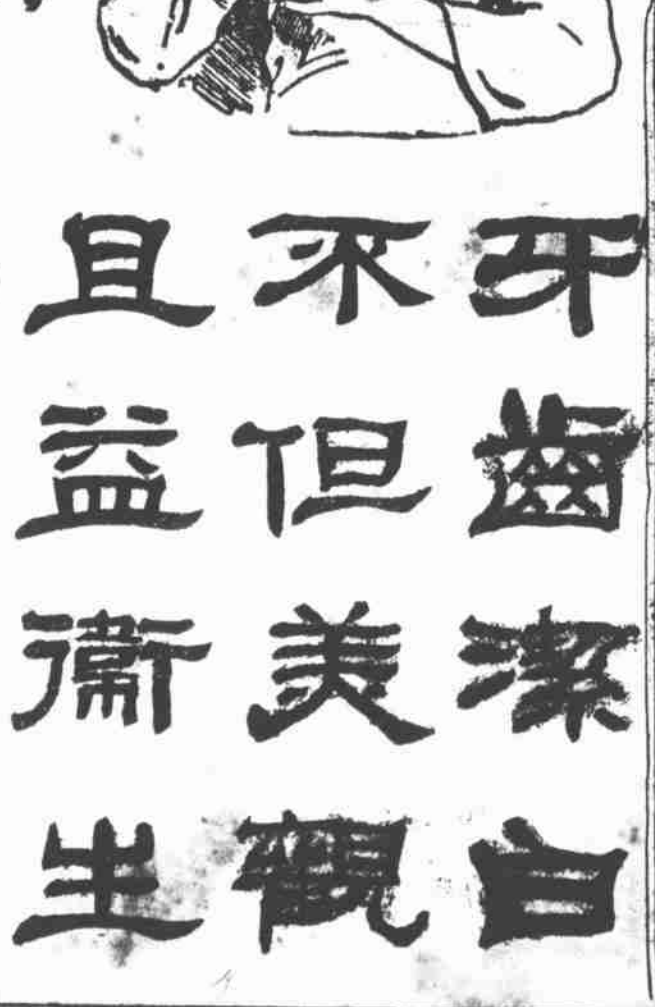 牙齒潔白
不但美觀
且益衞生